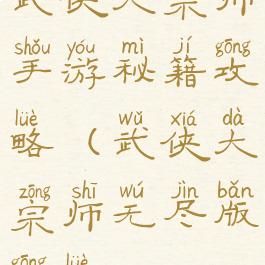 武侠大宗师
shǒu yóu mì jí gōng
手游秘籍攻
lüè wǔ xiá dà
略（武侠大
zōng shī wú jìn bǎn
宗师无尽版
gōng lüè